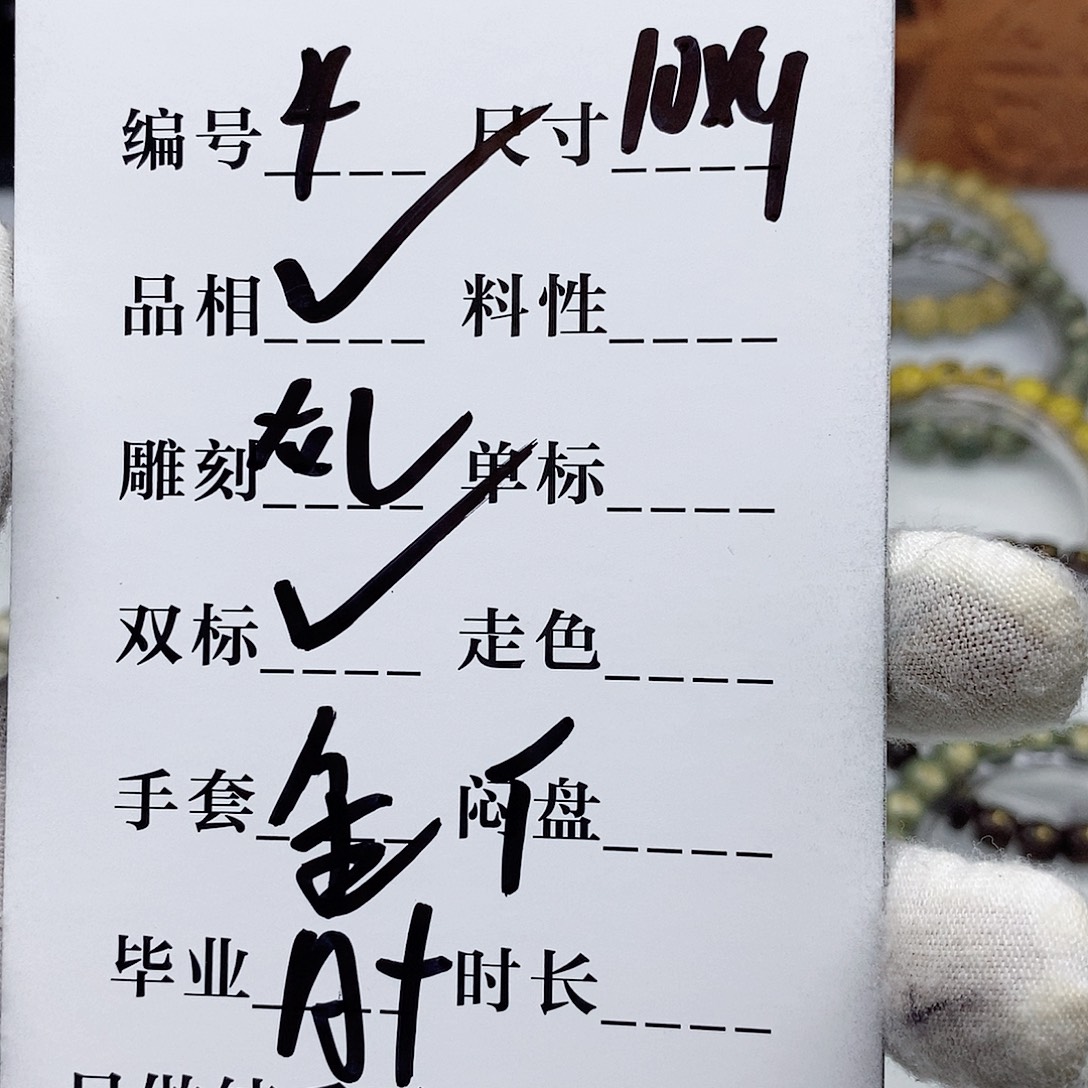 编号 4 尺寸 10x9
品相 ✓ 料性
雕刻 单标
双标 ✓ 走色
手套 闷盘
毕业 时长